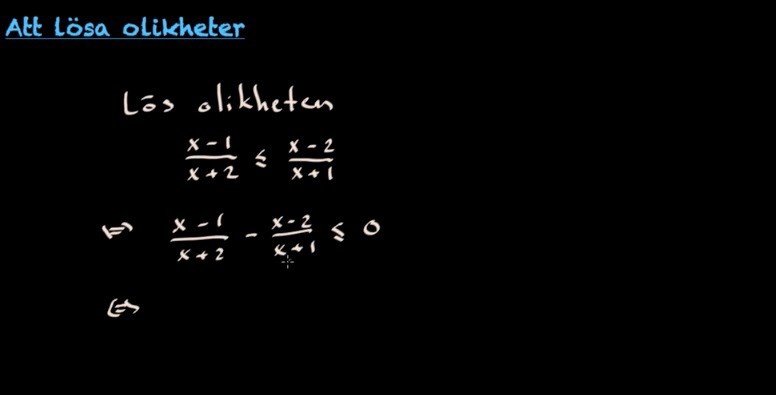 Att lösa olikheter
Lös olikheten
x - 1 / x + 2 ≤ x - 2 / x + 1
⇔ x - 1 / x + 2 - x - 2 / x + 1 ≤ 0
⇔